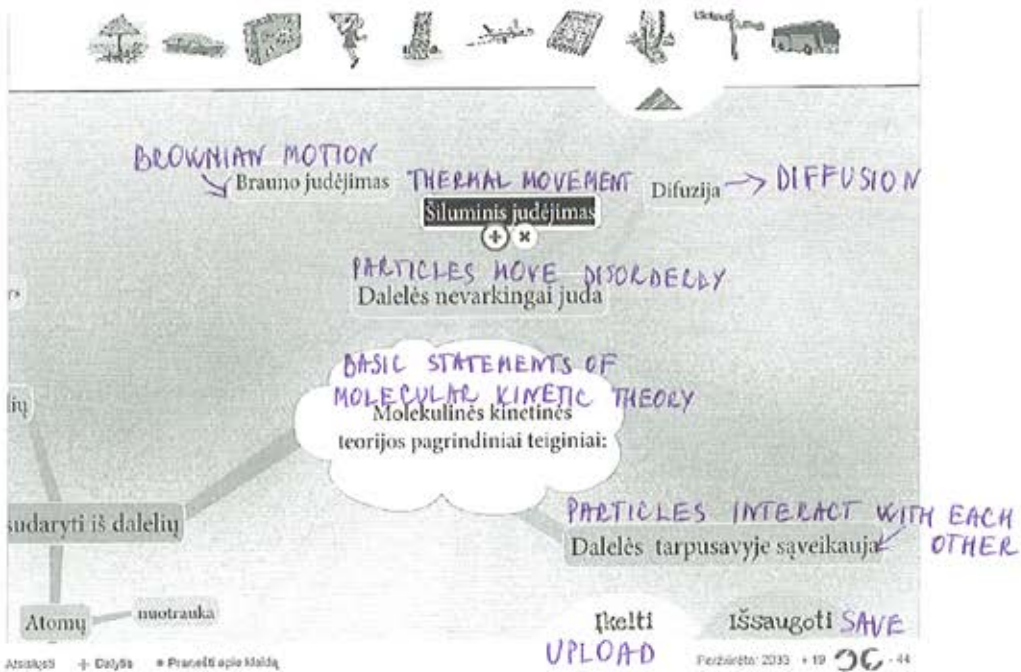 BROWNIAN MOTION
Brauno judėjimas
THERMAL MOVEMENT
Šiluminis judėjimas
Difuzija → DIFFUSION
PARTICLES MOVE DISORDERLY
Dalelės nevarkingai juda
BASIC STATEMENTS OF
MOLECULAR KINETIC THEORY
Molekulinės kinetinės
teorijos pagrindiniai teiginiai:
lių
sudaryti iš dalelių
PARTICLES INTERACT WITH EACH
OTHER
Dalelės tarpusavyje sąveikauja
Atomų
nuotrauka
Įkelti
UPLOAD
Išsaugoti SAVE
Atsisiųsti + Dalytis Pranešti apie klaidą
Peržiūrėta: 2033 +19 - 44